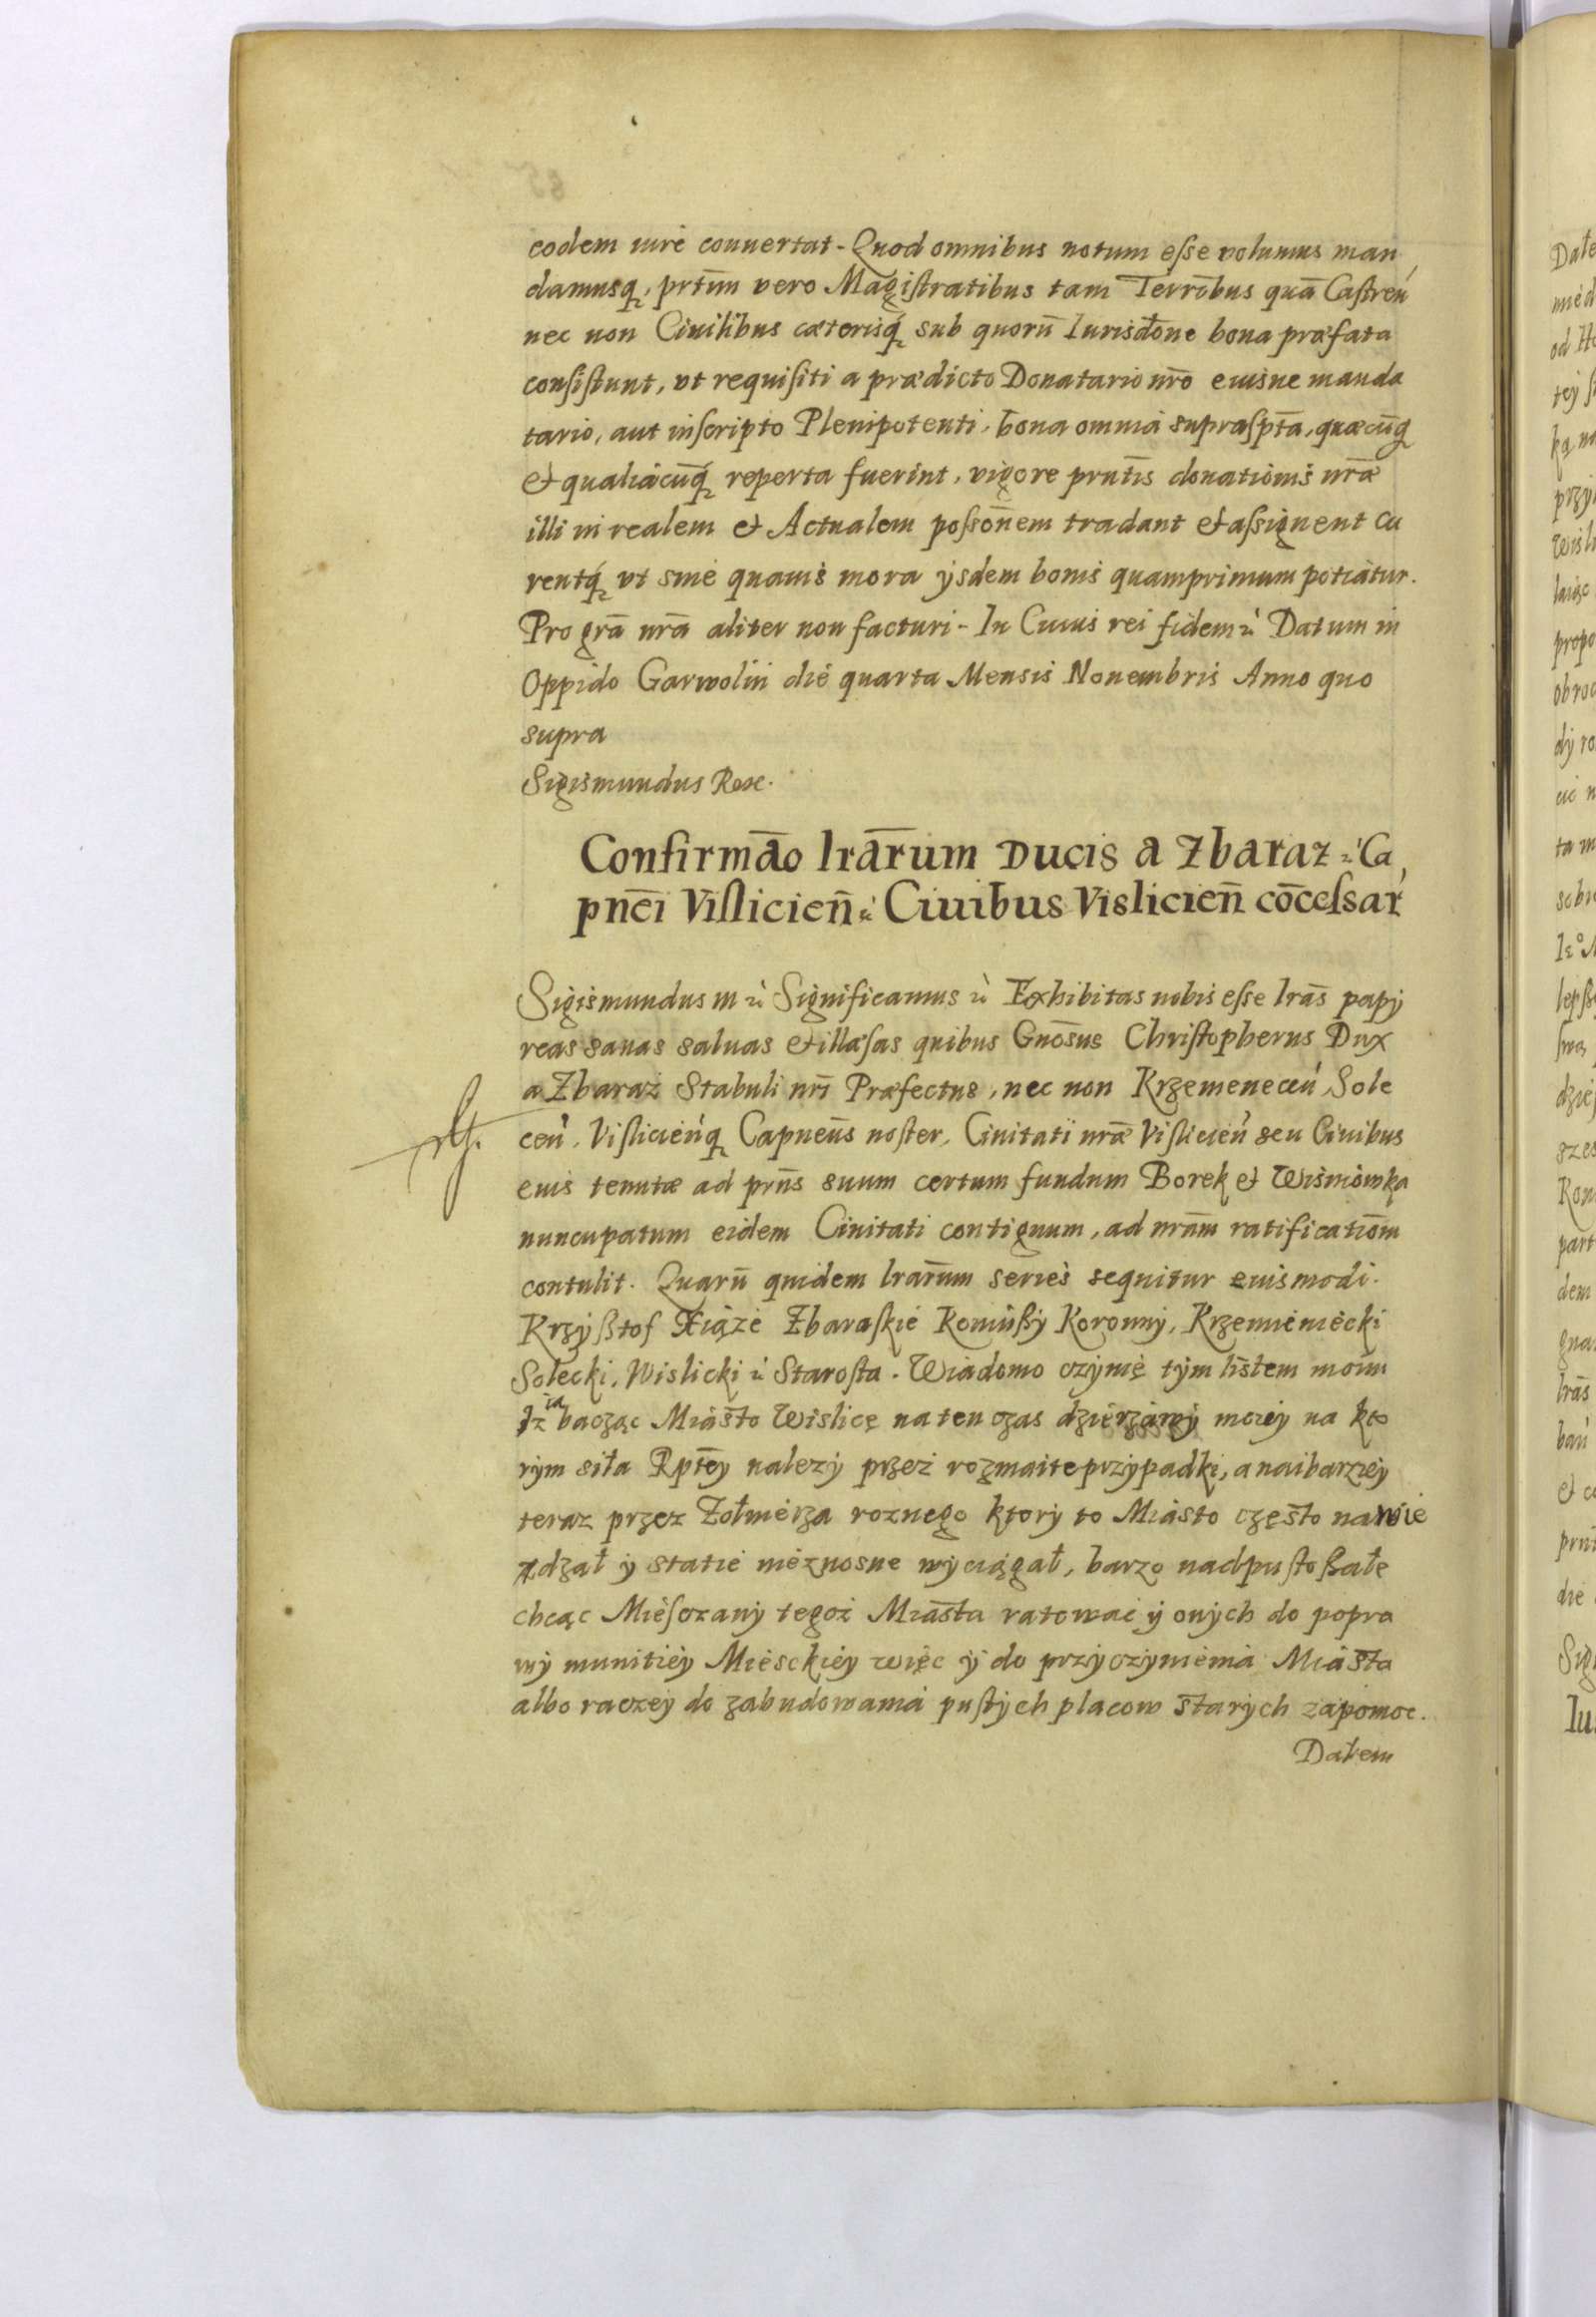 eodem iure conuertat. Quod omnibus notum eſse volumus man
damusq, prtīm vero Magiſtratibus tam Terrōbus quā Caſtreń
nec non Ciuilibus cæterisq́ sub quorū Iurisdōne bona præfata
conſiſtunt, vt requiſiti a prædicto Donatario nrō eiusue manda
tario, aut inſcripto Plenipotenti, bona omnia supraſptā, quæcūq
et qualiacūq́ reperta fuerint, vigore prntīs donationis nrǣ
illi in realem et Actualem poſsoñem tradant et aſsignent cu
rentq́ vt sine quauis mora ÿsdem bonis quamprimum potiatur.
Pro grā nrā aliter non facturi - In Cuius rei fidem ⁊ć Datum in
Oppido Garwolin die quarta Mensis Nouembris Anno quo
supra
Sigismundus Rex.
Confirmāo lrārum Ducis a Zbaraz ⁊ć Ca
pnēi Viſliciēn ⁊ć Ciuibus Visliciēn cōceſsar
Sigismundus III ⁊ć Significamus ⁊ć Exhibitas nobis eſse lrās papÿ
reas sanas saluas et illæſas quibus Gnōsus Chriſtopherus Dux
a Zbaraż Stabuli nrī Præfectus, nec non Krzemeneceń, Sole
ceń, Viſlicieńq Capneūs noſter, Ciuitati nrǣ Viſlicień seu Ciuibus
eius tenutæ ad prn̄s suum certum fundum Borek et Wiśniowka
nuncupatum eidem Ciuitati contiguum, ad nrām ratificatiōm
contulit. Quarū quidem lrārum series sequitur eiusmodi.
Krzÿßtof Xiąże Zbaraſkie Koniußÿ Koronnÿ, Krzemieniecki
Solecki, Wislicki ⁊ć Staroſta. Wiadomo czÿnię tÿm listem moim
Iz ia bacząc Miasto Wislicę na ten czas dzierzawÿ moieÿ na kto
rÿm siła Rptēÿ nalezÿ przez rozmaite przÿpadki, a naibarzieÿ
teraz przez Zołnierza roznego ktorÿ to Miasto często nawie
zdzał ÿ statie nieznosne wÿciągał, barzo nadpuſtoßałe
chcąc Mieſczanÿ tegoż Miasta ratowac ÿ onÿch do popra
wÿ munitieÿ Miesckieÿ więc ÿ do przÿczÿnienia Miasta
albo raczeÿ do zabudowania puſtÿch placow starÿch zapomoc.
Dałem